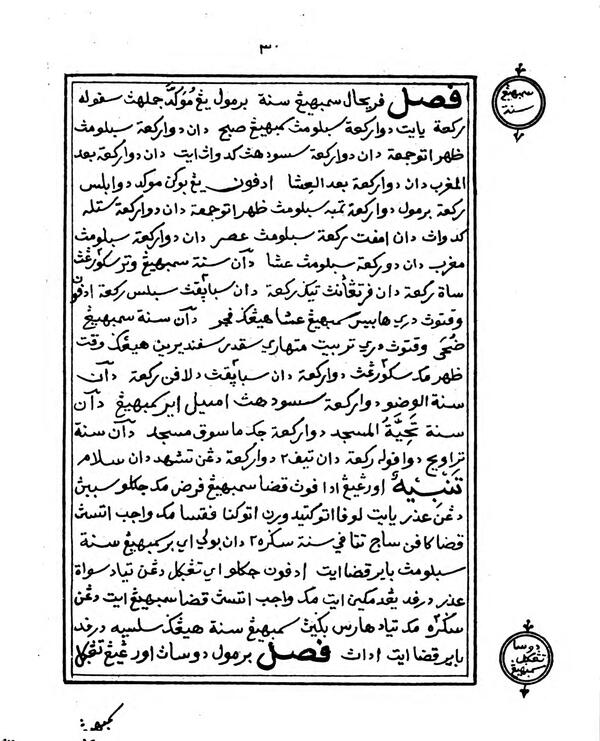 ٣٠
فصل فريحال سمبهيڠ سنة برمول يڠ مُؤكَّد جملهڽ سفوله
ركعة يايت دوا ركعة سبلومڽ كمبهيڠ صبح دان دوا ركعة سبلومڽ
ظهر اتو جمعة دان دوا ركعة سسودهڽ كدواڽ ايت دان دوا ركعة بعد
المغرب دان دوا ركعة بعد العشا ادفون يڠ بوكن موكد دوا بلس
ركعة برمول دوا ركعة تمبه سبلومڽ ظهر اتو جمعة دان دوا ركعة ستله
كدواڽ دان امفت ركعة سبلومڽ عصر دان دوا ركعة سبلومڽ
مغرب دان دو ركعة سبلومڽ عشا دان سنة سمبهيڠ وتر سكورڠڽ
ساة ركعة دان فرتڠاهنڽ تيݢ ركعة دان سباڽقڽ سبلس ركعة ادفون
وقتوڽ دري هابيس سمبهيڠ عشا هيڠݢ فجر دان سنة سمبهيڠ
ضُحَى وقتوڽ دري تربيت متهاري سقدر سفندير ين هيڠݢ وقت
ظهر مك سكورڠڽ دوا ركعة دان سباڽقڽ دلافن ركعة دان
سنة الوضو دوا ركعة سسودهڽ امبيل اير سمبهيڠ دان
سنة تَحِيَّةُ المسجد دوا ركعة جك ماسوق مسجد دان سنة
تراويح دوا فوله ركعة دان تيف٢ دوا ركعة دڠن تشهد دان سلام
تَنبِيهٌ اورڠيڠ ادا فوڽ قضا سمبهيڠ فرض مك جكلو سبب
دڠن عذر يايت لوفا اتو كتيدورن اتو كنا فقسا مك واجب اتسڽ
قضاكافن ساج تتافي سنة سݢره٢ دان بوليه اي برسمبهيڠ سنة
سبلومڽ باير قضا ايت ادفون جكلو اي تڠݢل دڠن تياد سواة
عذر درفد يڠد مكين ايت مك واجب اتسڽ قضا سمبهيڠ ايت دڠن
سݢره مك تياد هارس بݢيڽ سمبهيڠ سنة هيڠݢ سلسيه درفد
باير قضا ايت اداڽ فصل برمول دوساڽ اورڠيڠ تڠݢل
سمبهيڠ
سنة
دوسا
تڠݢل
سمبهيڠ
سمبهيڠ